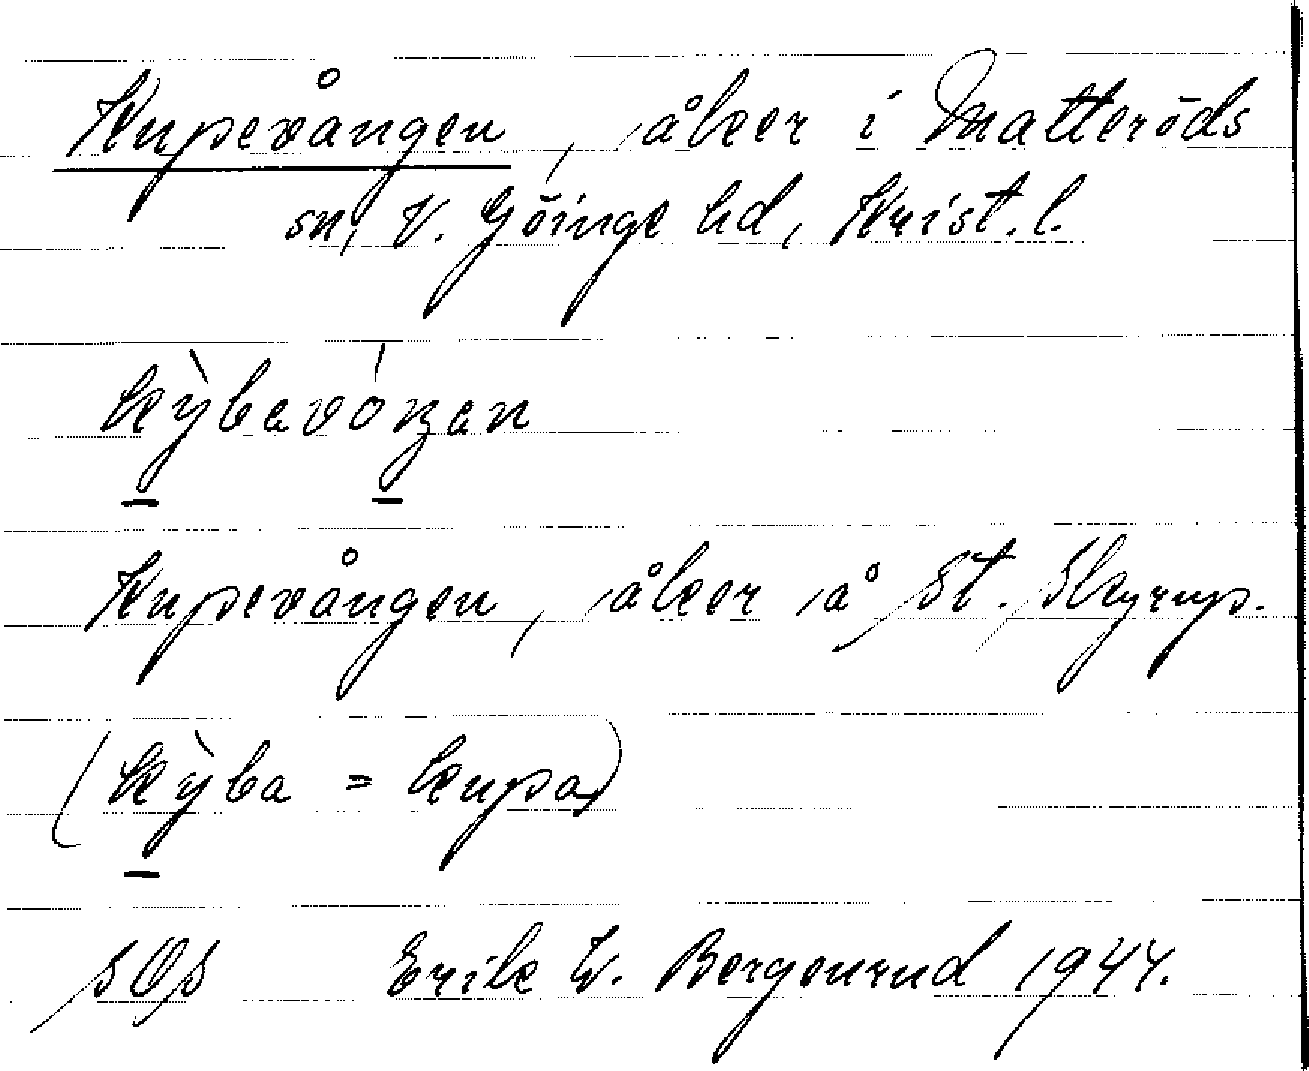 Kupevången, åker i Matteröds
sn, V. Göinge hd, Krist. l.
kỳbavóŋan
Kupevången, åker å St. Skyrup.
(kỳba = kupa)
sOs Erik W. Bergenrud 1944.